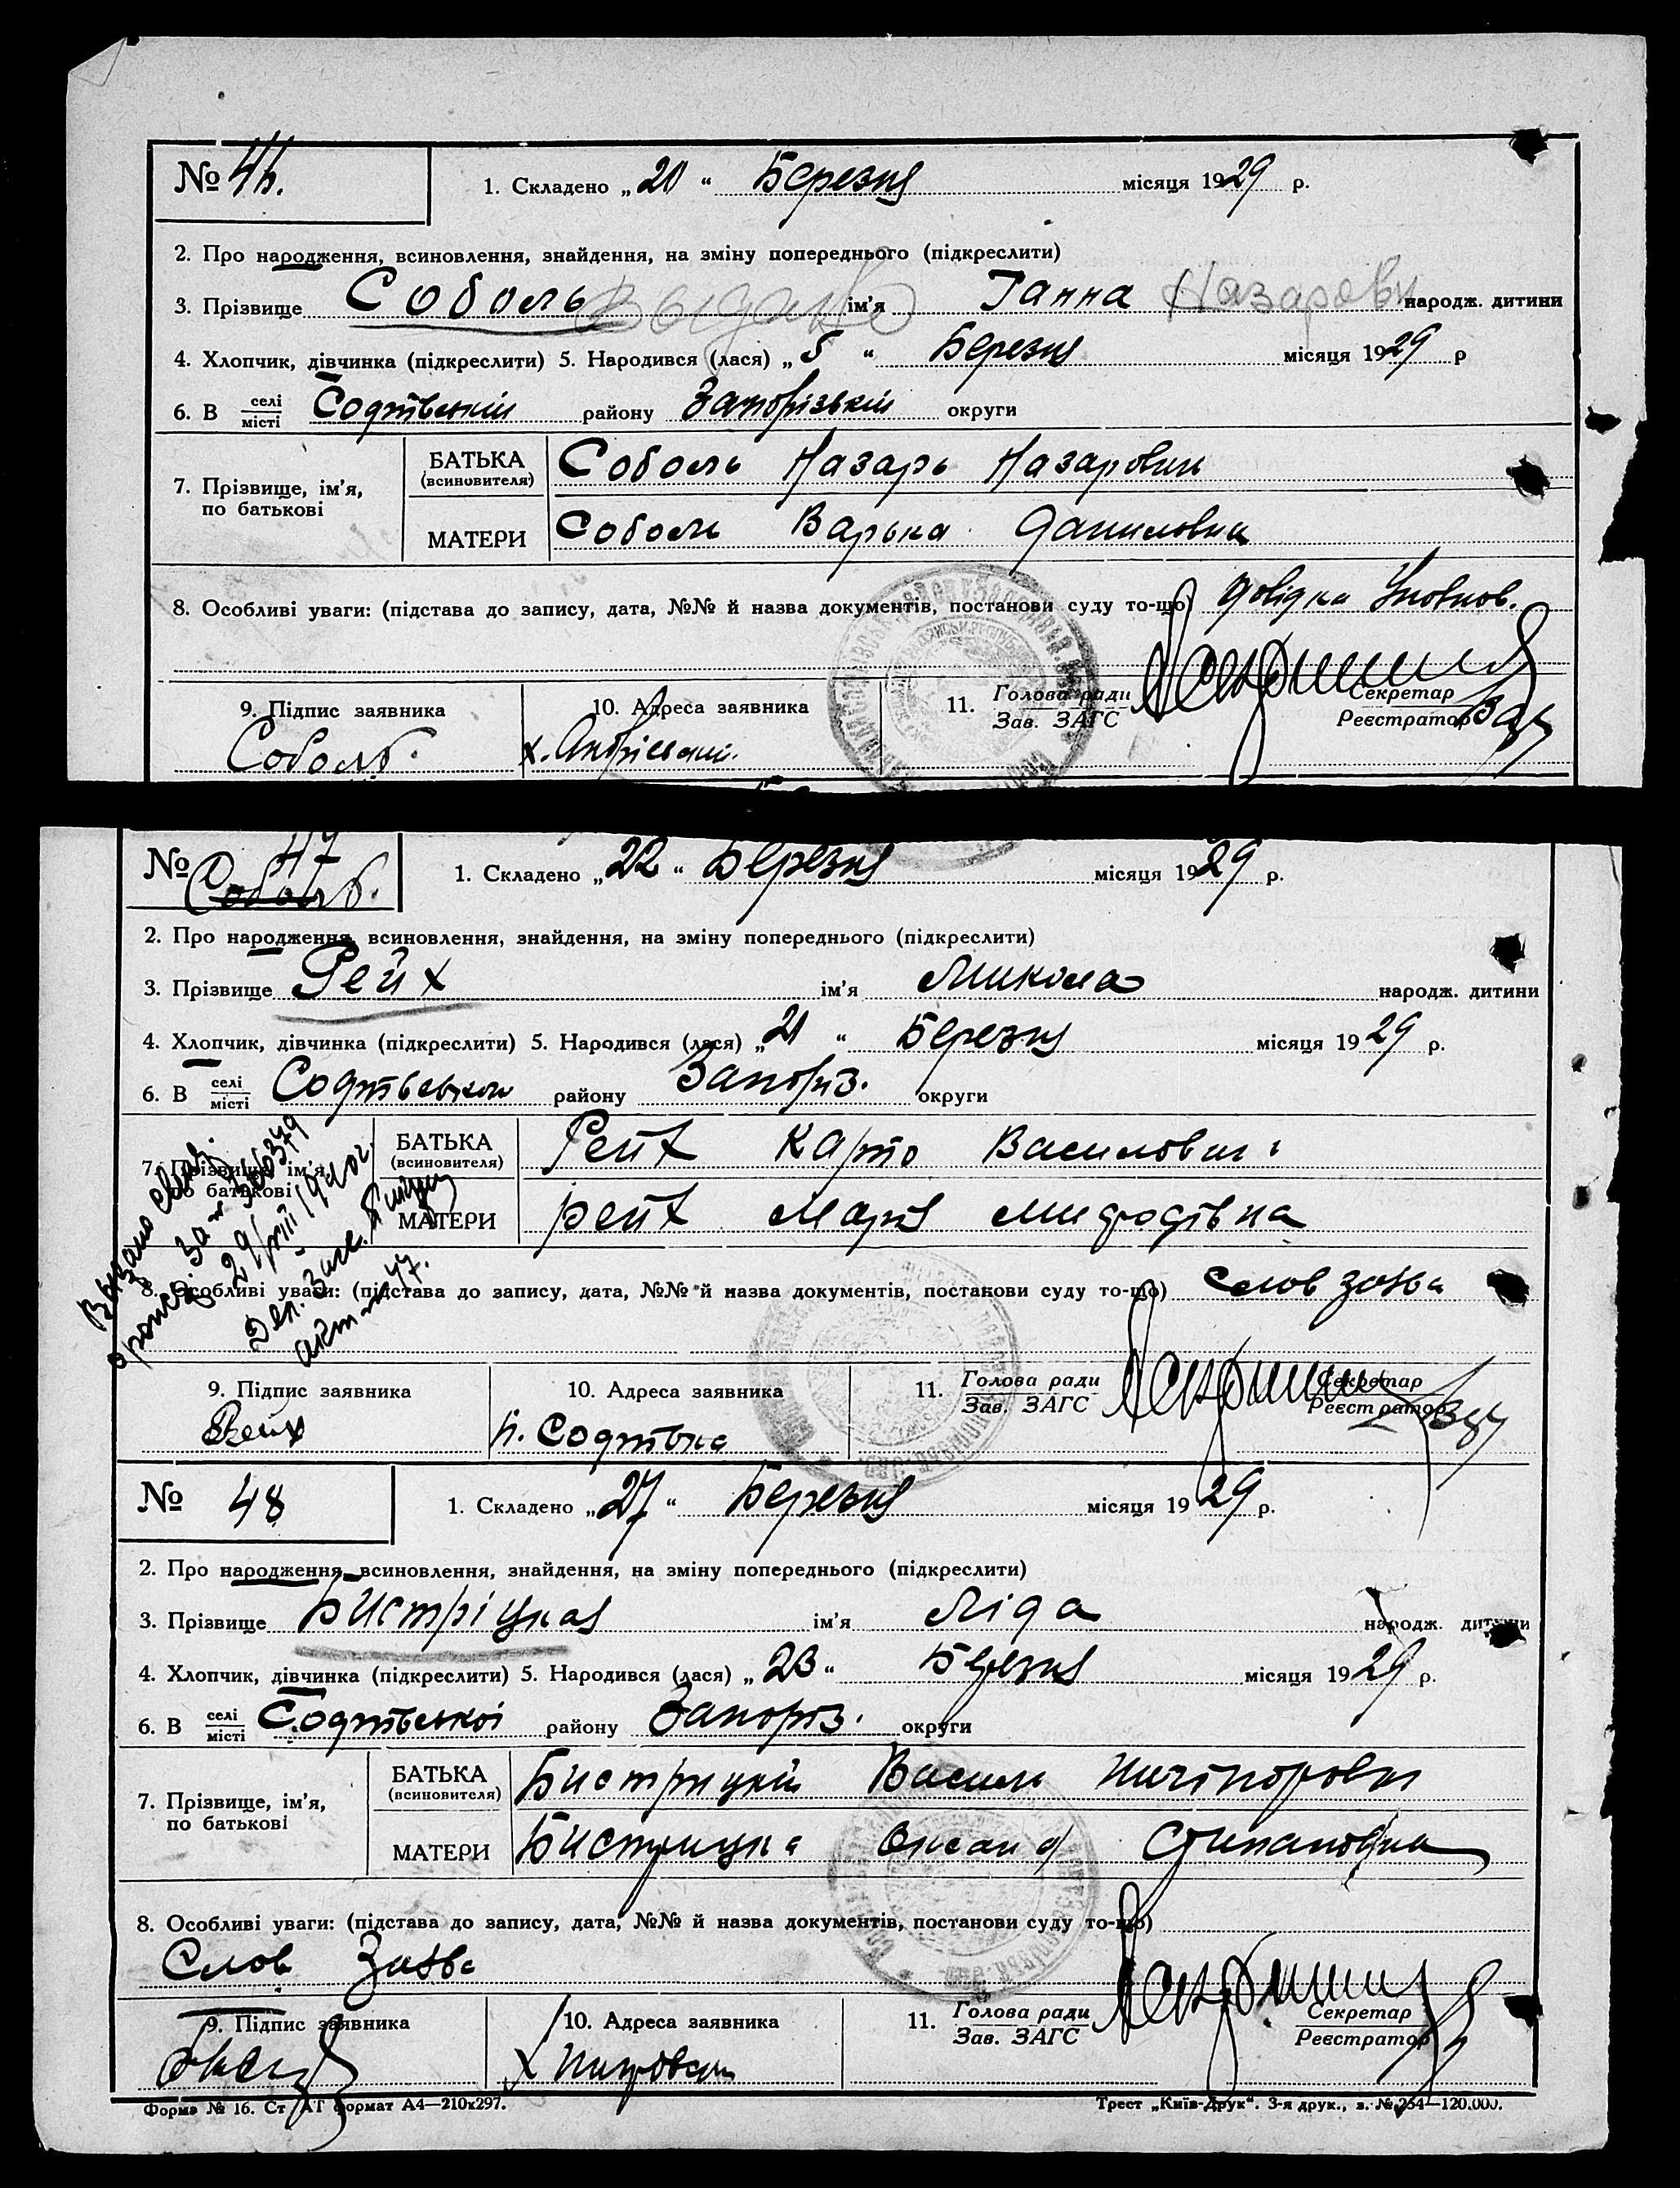 № 46. 1. Складено „20“ Березня місяця 1929 р.
2. Про народження, всиновлення, знайдення, на зміну попереднього (підкреслити)
3. Прізвище Соболь Выдано ім'я Ганна Назаровн народж. дитини
4. Хлопчик, дівчинка (підкреслити) 5. Народився (лася) „5“ Березня місяця 1929 р
6. В селі місті району Запорізькій округи
7. Прізвище, ім'я, по батькові
БАТЬКА (всиновителя) Соболь Назарь Назарович
МАТЕРИ Соболь Варька Даниловна
8. Особливі уваги: (підстава до запису, дата, №№ й назва документів, постанови суду то-що) Довідка
9. Підпис заявника 10. Адреса заявника 11. Голова ради Секретар
Зав. ЗАГС Реєстратор
Соболь. х.
№ 47 1. Складено „22“ Березня місяця 1929 р.
Соболь.
2. Про народження, всиновлення, знайдення, на зміну попереднього (підкреслити)
3. Прізвище Рейх ім'я Микола народж. дитини
4. Хлопчик, дівчинка (підкреслити) 5. Народився (лася) „21“ Березня місяця 1929 р.
6. В селі місті району Запоріз. округи
7. Прізвище, ім'я, по батькові
БАТЬКА (всиновителя) Рейх Карло Василович
МАТЕРИ Рейх Марія Мифодівна
8. Особливі уваги: (підстава до запису, дата, №№ й назва документів, постанови суду то-що) Слов заява
9. Підпис заявника 10. Адреса заявника 11. Голова ради Секретар
Зав. ЗАГС Реєстратор
Рейх Софіївка
№ 48 1. Складено „27“ Березня місяця 1929 р.
2. Про народження, всиновлення, знайдення, на зміну попереднього (підкреслити)
3. Прізвище Бистріцкая ім'я Ліда народж. дитини
4. Хлопчик, дівчинка (підкреслити) 5. Народився (лася) „23“ Березня місяця 1929 р.
6. В селі місті Софіївської району Запоріз. округи
7. Прізвище, ім'я, по батькові
БАТЬКА (всиновителя) Бистрицкій Василь Ничіпорович
МАТЕРИ Бистрицка Оксана Степановна
8. Особливі уваги: (підстава до запису, дата, №№ й назва документів, постанови суду то-що)
Слов. Заява
9. Підпис заявника 10. Адреса заявника 11. Голова ради Секретар
Зав. ЗАГС Реєстратор
Форма № 16. Ст АТ формат А4—210х297. Трест „Київ-Друк“. 3-я друк., з. № 254—120.000.